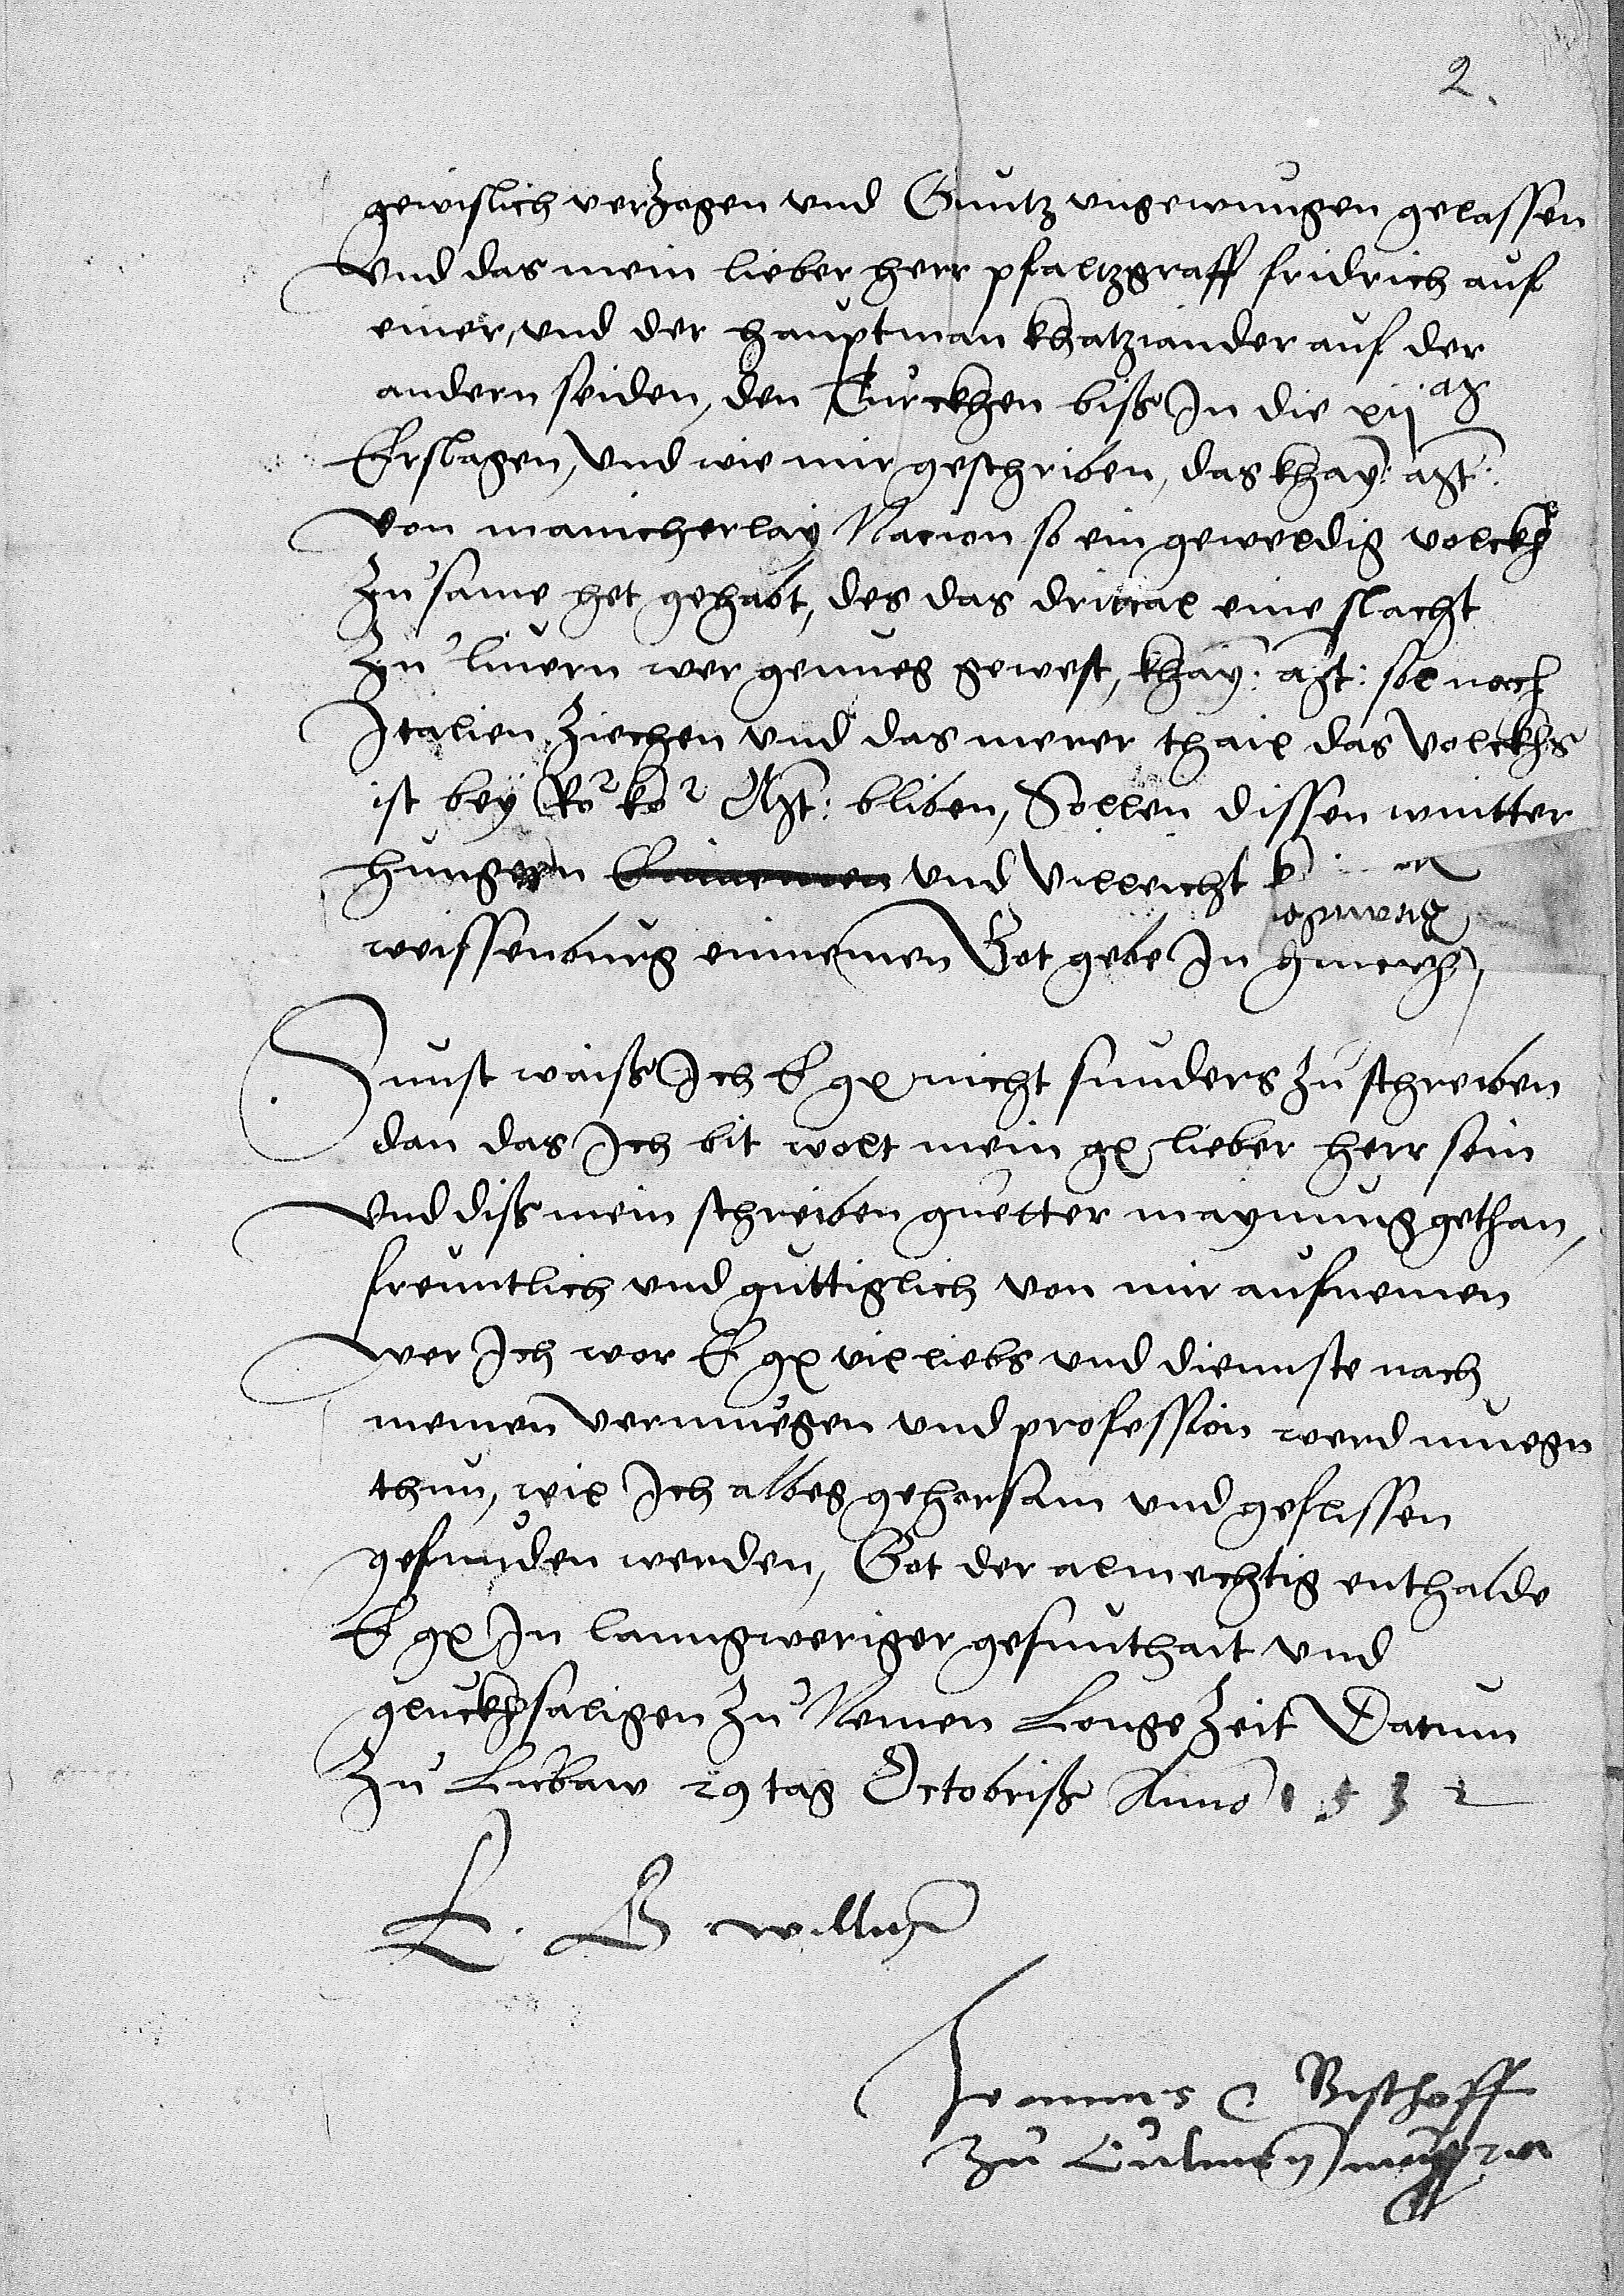 2.
gewislich verzogen und Guntz ungewungen gelassen
Und das mein lieber herr pfaltzgraff fridrich auf
einer, und der hauptman khatziander auf der
andern seiden, den Turckhen biss In die xii
Erslagen, Und wie mir geschriben, das khay: Mt:
Von manicherlay Nacion so ein geweldig volckh
Zusame het gehabt, des das drittail eine slacht
Zu livern wer genueg gewest, khay: Mt: sol noch
Italien Ziechen und das merer thail das Volckhs
ist bey Ro ko Mt: bliben, Sollen dissen wintter
hungern und Villeicht
weissenburg einnemen Got gebe In
Sunst waiss Ich E g nicht sunders zu schreiben
dan das Ich bit wolt mein g lieber herr sein
Und diss mein schreiben guetter maynung gethan,
freuntlich und guttiglich von mir aufnemen
wer Ich wor E g vil liebs und diennste nach
meinen Vermuegen und profession werd muegn
thun, wil Ich albeg gehorsam und geflissen
gefunden werden, Got der almechtig enthalde
E g In langweriger gesunthait und
gluckhsaligen zu Nemen Lange Zeit Datum
Zu Lubaw 29 tag Octobriss Anno 1532
E. G. williger
Joannes Bischoff
Zu Culmen